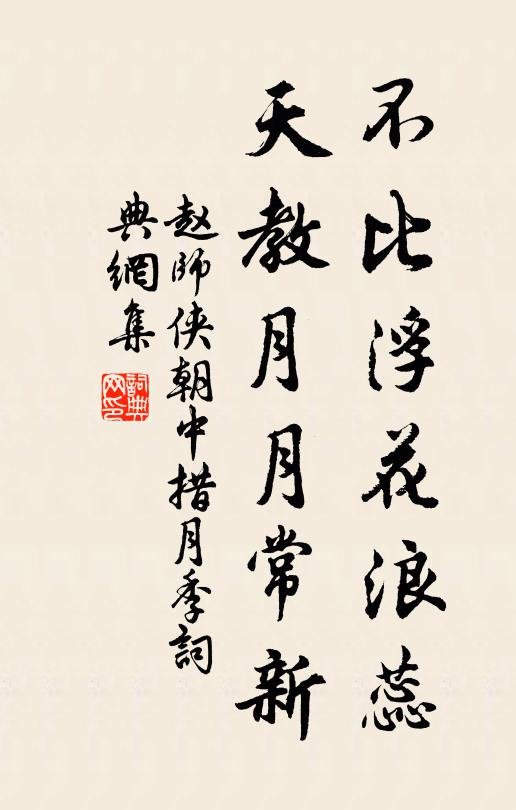 不比浮花浪蕊
天教月月常新
赵师侠朝中措月季詞
典網集
詞典网印